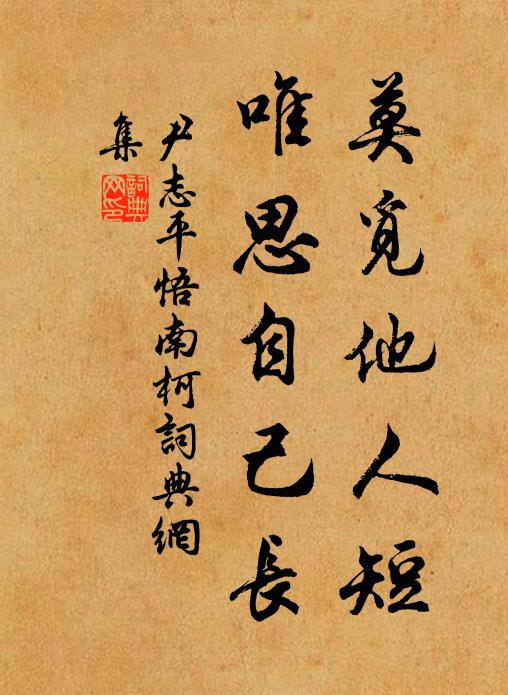 莫覓他人短
唯思自己長
尹志平悟南柯詞典網
集
詞典
网印